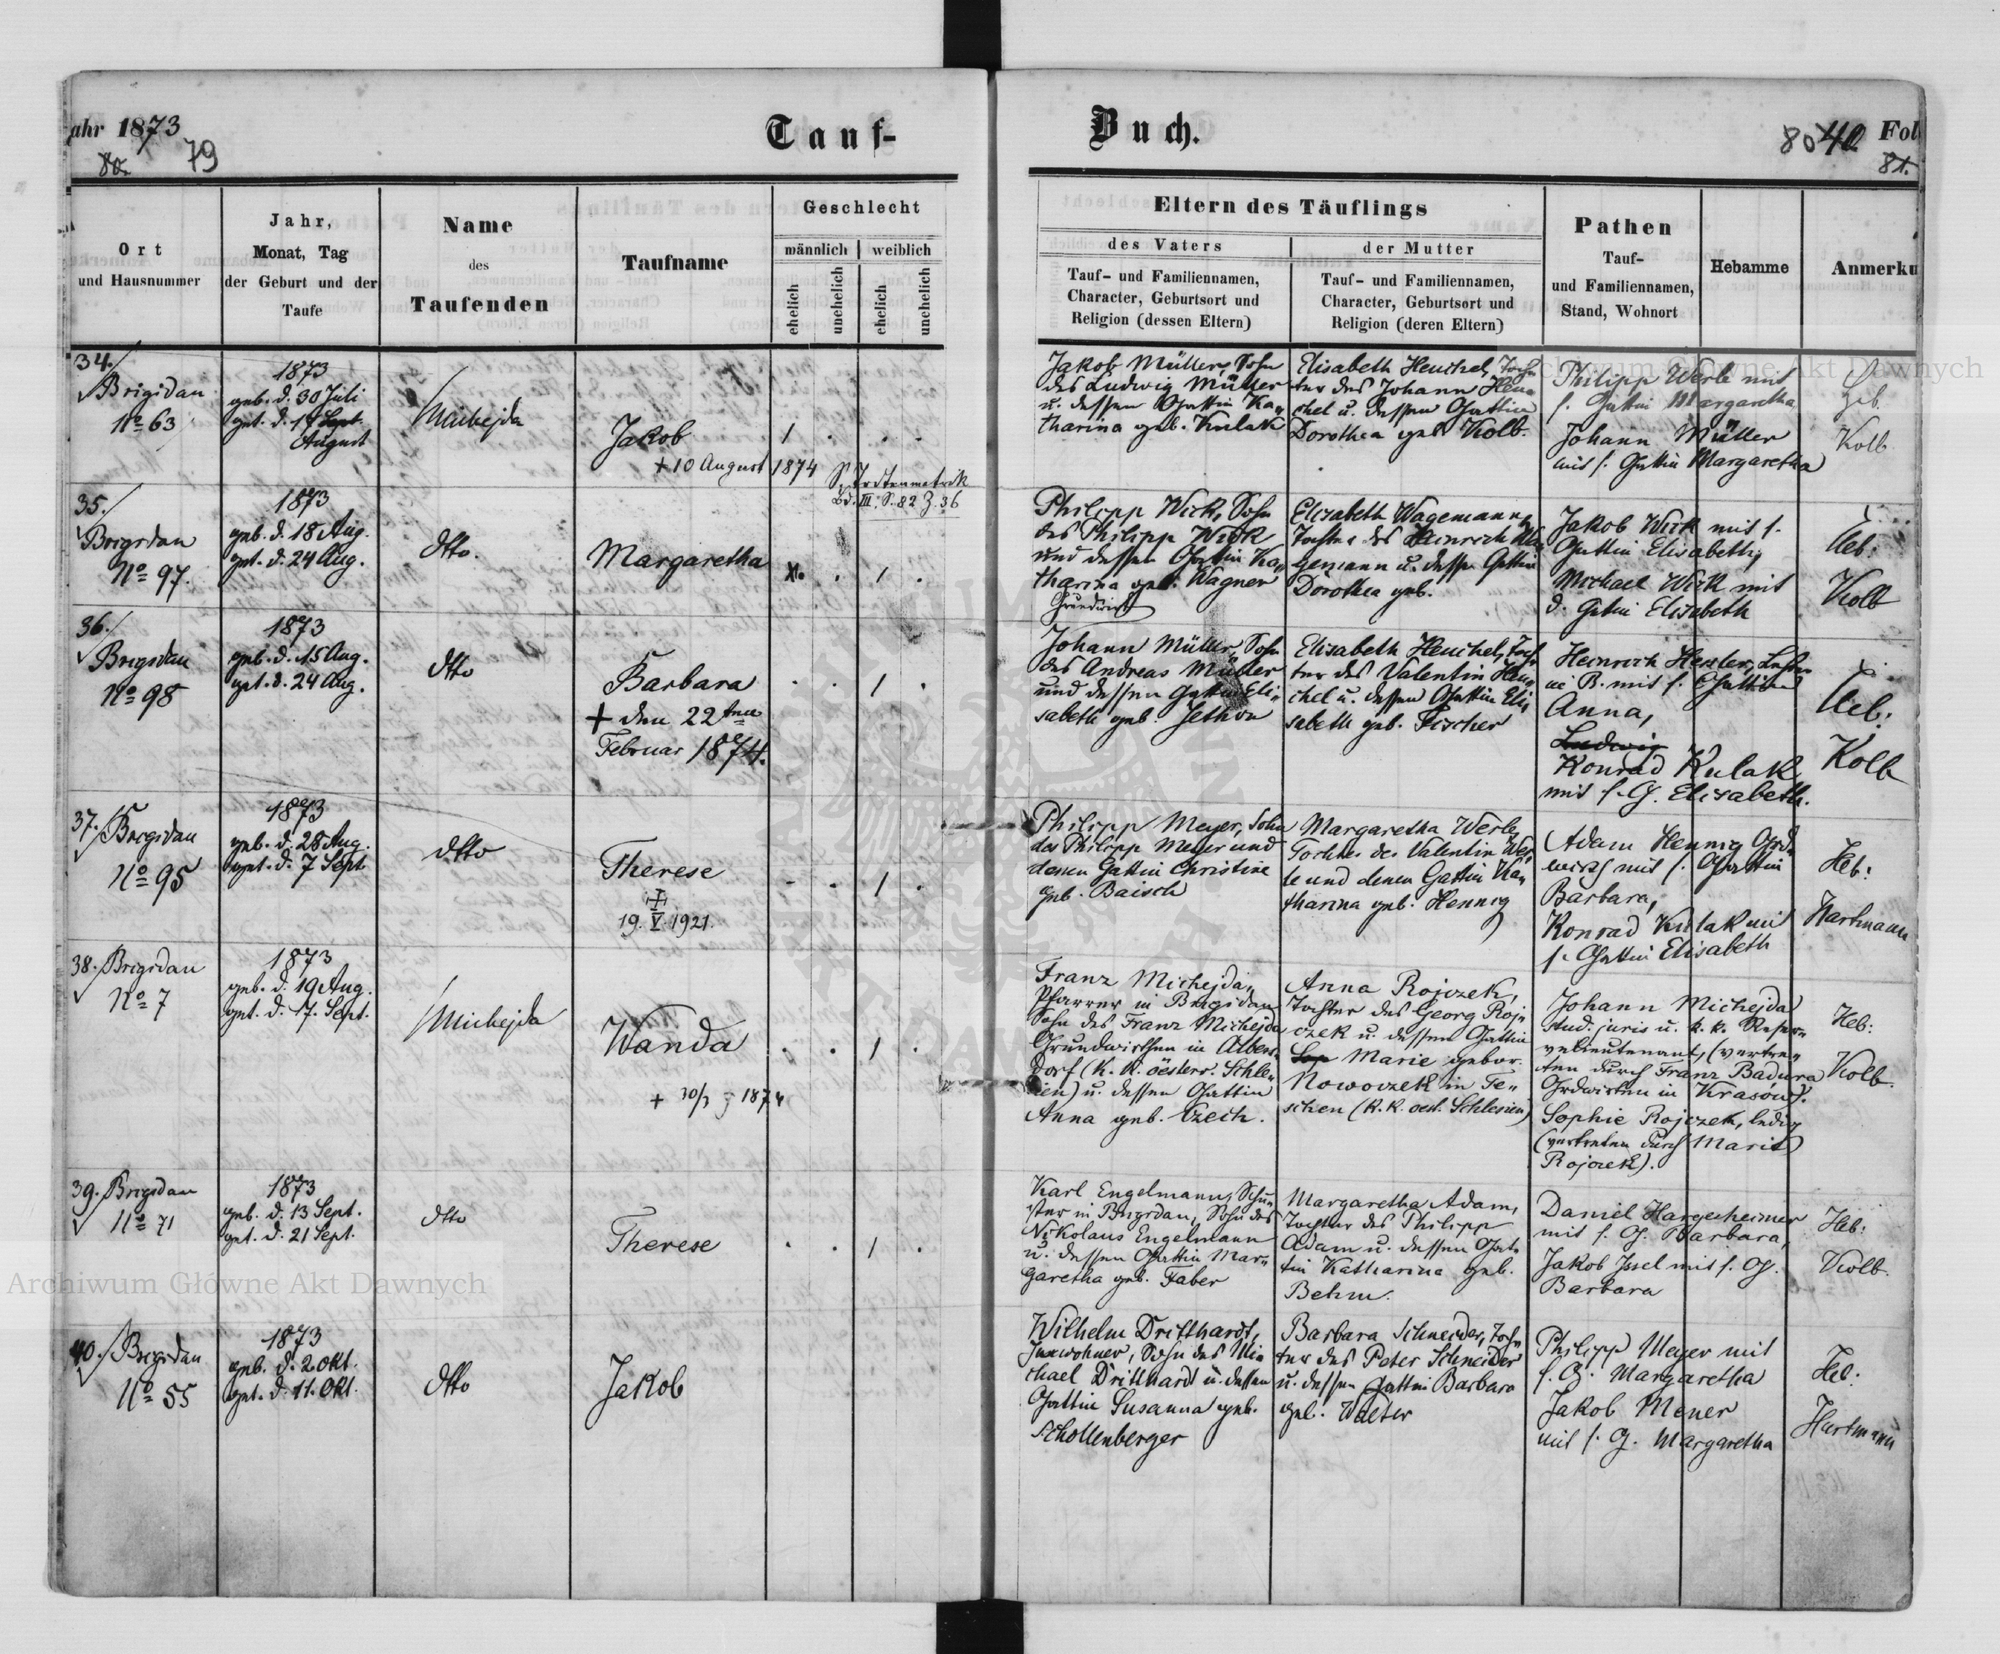 ahr 1873
79
Tauf-
Ort
und Hausnummer
Jahr,
Monat, Tag
der Geburt und der
Taufe
Name
des
Taufenden
Taufname
Geschlecht
männlich
weiblich
ehelich
unehelich
ehelich
unehelich
34.
Brigidau
No 63
1873
geb. d. 30 Juli
get. d. 17 Sept.
August
Michejda
Jakob
+ 10 August 1874
S. Totenmatrik
Bd. III. S. 82 Z. 36
35.
Brigidau
No 97.
1873
geb. d. 18 Aug.
get. d. 24 Aug.
dtto.
Margaretha
36.
Brigidau
No 98
1873
geb. d. 15 Aug.
get. d. 24 Aug.
dtto
Barbara
+ den 22ten
Februar 1874.
37. Brigidau
No 95
1873
geb. d. 28 Aug.
get. d. 7 Sept.
dtto
Therese
19. V. 1921.
38. Brigidau
No 7
1873
geb. d. 19 Aug.
get. d. 17. Sept.
Michejda
Wanda
+ 30/3 1874
39. Brigidau
No 71
1873
geb. d. 13 Sept.
get. d. 21 Sept.
dtto
Therese
40. Brigidau
No 55
1873
geb. d. 2 Okt.
get. d. 11. Okt.
dtto
Jakob
Buch.
40 Fol
81.
Eltern des Täuflings
des Vaters
Tauf- und Familiennamen,
Character, Geburtsort und
Religion (dessen Eltern)
der Mutter
Tauf- und Familiennamen,
Character, Geburtsort und
Religion (deren Eltern)
Pathen
Tauf-
und Familiennamen,
Stand, Wohnort
Hebamme
Anmerku
Jakob Müller, Sohn
des Ludwig Müller
u. dessen Gattin Ka-
tharina geb. Kulak
Elisabeth Heuchel, Toch-
ter des Johann Heu-
chel u. dessen Gattin
Dorothea geb. Kolb.
Philipp Werle mit
s. Gattin Margaretha
Johann Müller
mit s. Gattin Margaretha
Kolb
Philipp Wick, Sohn
des Philipp Wick
und dessen Gattin Ka-
tharina geb. Wagner
Grundwirth
Elisabeth Wagemann,
Tochter des Heinrich Wa-
gemann u. dessen Gattin
Dorothea geb.
Jakob Wick mit s.
Gattin Elisabeth,
Michael Wick mit
d. Gattin Elisabeth
Heb:
Kolb
Johann Müller, Sohn
des Andreas Müller
und dessen Gattin Eli-
sabeth geb. Jethon
Elisabeth Heuchel, Toch-
ter des Valentin Heu-
chel u. dessen Gattin Eli-
sabeth geb. Fischer
Heinrich Hexler, Lehrer
in B. mit s. Gattin
Anna,
Ludwig
Konrad Kulak
mit s. G. Elisabeth.
Heb:
Kolb
Philipp Meyer, Sohn
des Philipp Meyer und
denen Gattin Christine
geb. Baisch
Margaretha Werle,
Tochter des Valentin Wer-
le und denen Gattin Ka-
tharina geb. Hennig
Adam Hennig Grd-
wirth mit s. Gattin
Barbara,
Konrad Kulak mit
s. Gattin Elisabeth
Heb:
Hartmann
Franz Michejda,
Pfarrer in Brigidau
Sohn des Franz Michejda
Grundwirthen in Albers-
dorf (k. k. österr. Schle-
sien) u. dessen Gattin
Anna geb. Czech.
Anna Rojczek,
Tochter des Georg Roj-
czek u. dessen Gattin
Marie gebor.
Nowoczek in Te-
schen (k. k. oest. Schlesien)
Johann Michejda
stud. juris u. k. k. Reser-
velieutenant, (vertre-
ten durch Franz Badura
Grdwirten in Krasów).
Sophie Rojczek, ledig
(vertreten durch Marie
Rojczek).
Heb:
Kolb.
Karl Engelmann, Schu-
ster in Brigidau, Sohn des
Nikolaus Engelmann
u. dessen Gattin Mar-
garetha geb. Faber
Margaretha Adam,
Tochter des Philipp
Adam u. dessen Gat-
tin Katharina geb.
Behm.
Daniel Hargesheimer
mit s. G. Barbara,
Jakob Issel mit s. G.
Barbara
Heb:
Kolb.
Wilhelm Dritthardt,
Innwohner, Sohn des Mi-
chael Dritthardt u. dessen
Gattin Susanna geb.
Schollenberger
Barbara Schneider, Toch-
ter des Peter Schneider
u. dessen Gattin Barbara
geb. Walter
Philipp Meyer mit
s. G. Margaretha
Jakob Meyer
mit s. G. Margaretha
Heb:
Hartmann
Archiwum Główne Akt Dawnych
Archiwum Główne Akt Dawnych